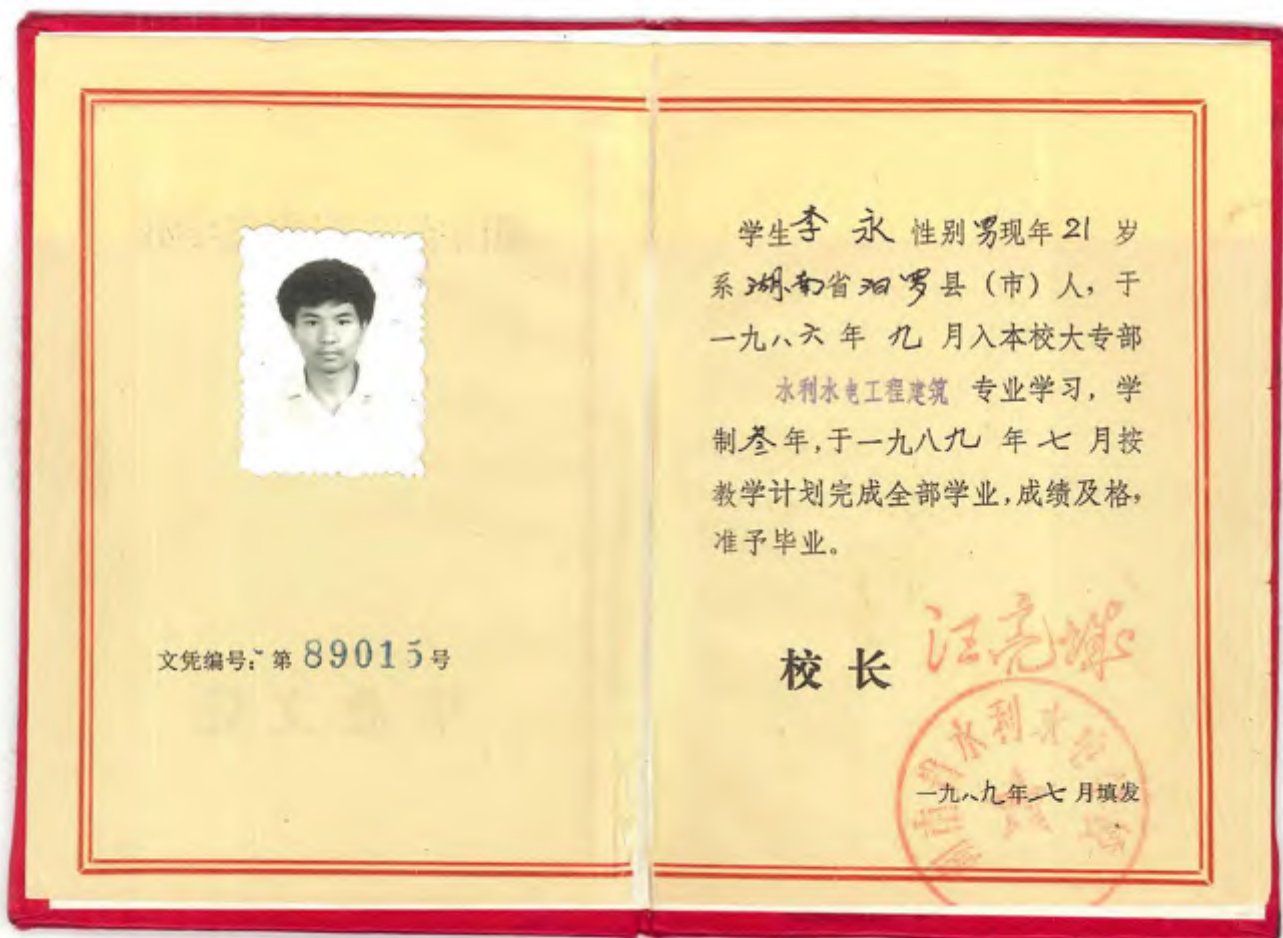 文凭编号：第 89015 号
学生 李 永 性别 男 现年 21 岁
系 湖南 省 汨罗 县（市）人，于
一九八六 年 九 月入本校大专部
水利水电工程建筑 专业学习，学
制 叁 年，于一九八九 年 七 月按
教学计划完成全部学业，成绩及格，
准予毕业。
校 长
一九八九年 七 月填发